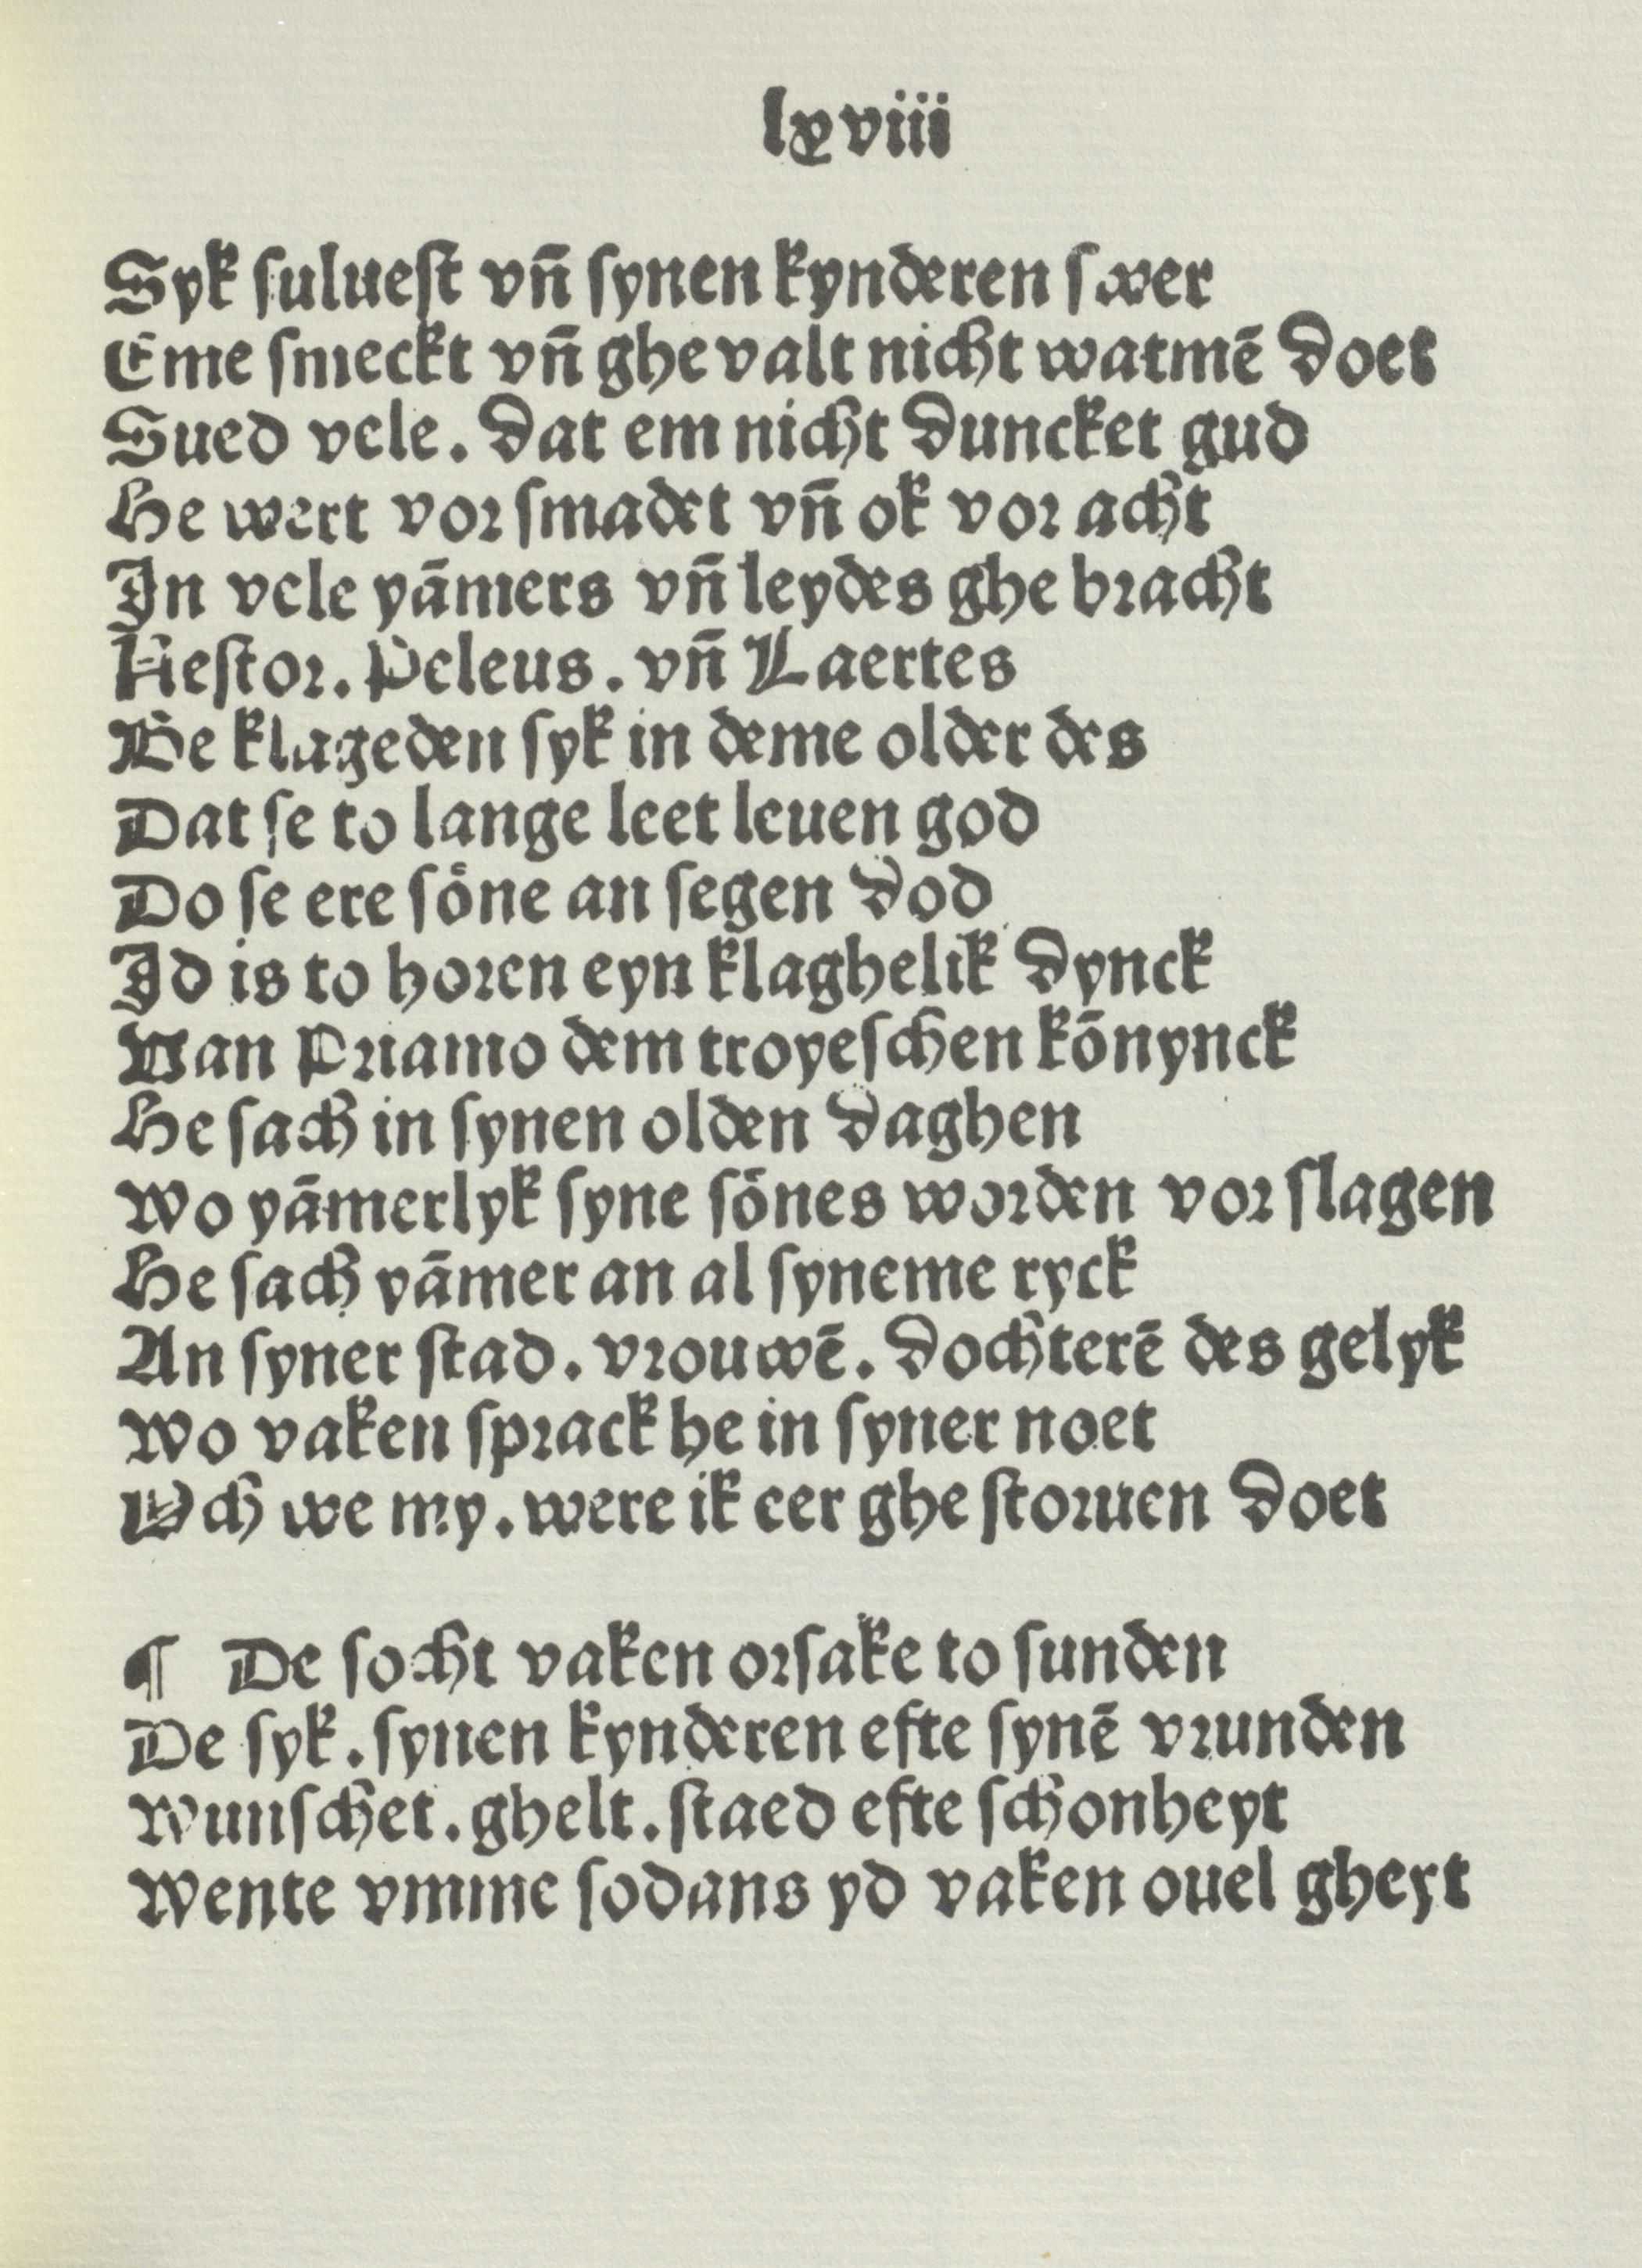 lxviii
Syk ſulueſt vn̄ ſynen kynderen ſwer
Eme ſmeckt vn̄ ghe valt nicht watmē doet
Sued vele. dat em nicht duncket gud
He wert vor ſmadet vn̄ ok vor acht
In vele yāmers vn̄ leydes ghe bracht
Neſtor. Peleus. vn̄ Laertes
De klageden ſyk in deme older des
Dat ſe to lange leet leuen god
Do ſe ere ſoͤne an ſegen dod
Id is to horen eyn klaghelik dynck
Van Priamo dem troyeſchen kōnynck
He ſach in ſynen olden daghen
Wo yāmerlyk ſyne ſōnes worden vor ſlagen
He ſach yāmer an al ſyneme ryck
An ſyner ſtad. vrouwē. dochterē des gelyk
Wo vaken ſprack he in ſyner noet
Och we my. were ik eer ghe ſtoruen doet
¶ De ſocht vaken orſake to ſunden
De ſyk. ſynen kynderen efte ſynē vrunden
Wunſchet. ghelt. ſtaed efte ſchonheyt
Wente vmme ſodans yd vaken ouel gheyt